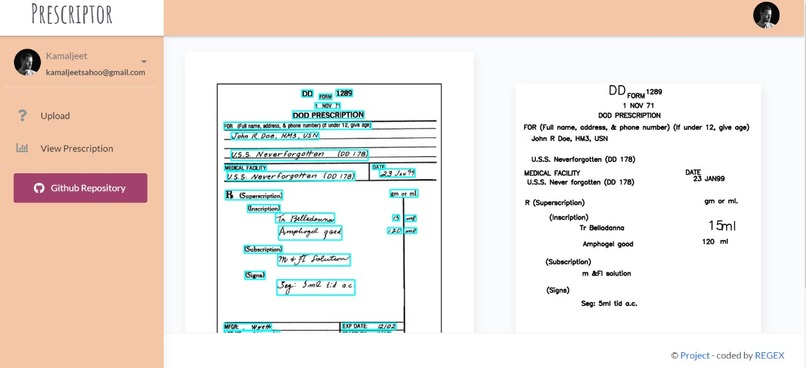 PRESCRIPTOR
Kamaljeet
kamaljeetsahoo@gmail.com
Upload
View Prescription
Github Repository
DD FORM 1289
1 NOV 71
DOD PRESCRIPTION
FOR (Full name, address, & phone number) (If under 12, give age)
John R Doe, HM3, USN
U.S.S. Neverforgotten (DD 178)
MEDICAL FACILITY
DATE
U.S.S. Neverforgotten (DD 178)
23 Jan 99
R (Superscription)
gm or ml.
(Inscription)
Tr Belladonna
15 ml
Amphogel qsad
120 ml
(Subscription)
M & Ft Solution
(Signa)
Sig: 5ml tid a.c.
MFGR: Wyeth
EXP DATE: 12/02
DD FORM 1289
1 NOV 71
DOD PRESCRIPTION
FOR (Full name, address, & phone number) (If under 12, give age)
John R Doe, HM3, USN
U.S.S. Neverforgotten (DD 178)
MEDICAL FACILITY
DATE
U.S.S. Never forgotten (DD 178)
23 JAN99
R (Superscription)
gm or ml.
(Inscription)
Tr Belladonna
15ml
Amphogel good
120 ml
(Subscription)
m &FI solution
(Signs)
Seg: 5ml tid a.c.
© Project - coded by REGEX